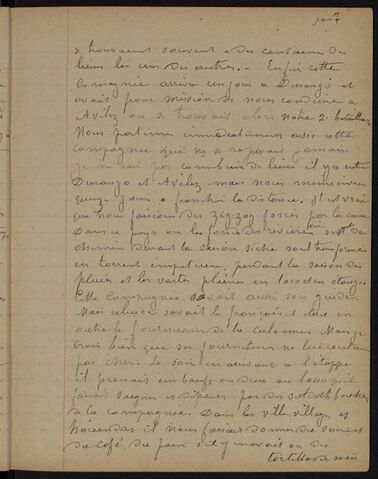 107
se trouvaient souvent a des centaine de
lieues les uns des autres. - Enfin cette
Compagnie arriva un jour a Durango et
avait pour mission de nous conduire a
Avilez ou se trouvait alors notre 2e bataillon
Nous partimes immediatement avec cette
compagnie qui ne se reposait jamais.
Je ne sais pas combien de lieues il y a entre
Durango et Avilez mais nous mimes
quinze jours a franchir la distance. Il est vrai
que nous faisions des zig-zag forcés par les eaux
Dans ce pays ou les fonds des rivières servent de
chemin durant la saison sèche sont transformés
en torrent impetueux, pendant la saison des
pluies et les vastes plaines en lacs ou en étangs.
Cette Compagnie avait aussi son guide
Mais celui-ci savait le français et était en
outre le fournisseur de la Colonne. Mais je
crois bien que ses fournitures ne lui coutaient
pas cher. Le soir en arrivant a l'étape
il prenait un boeuf ou deux au lasso qu'il
faisait saigner et dépecer par des soldats bouchers
de la compagnie. Dans les villes, villages et
haciendas il nous faisait donner du sucre et
du café, du pain s'il y en avait ou des
tortillas de maïs